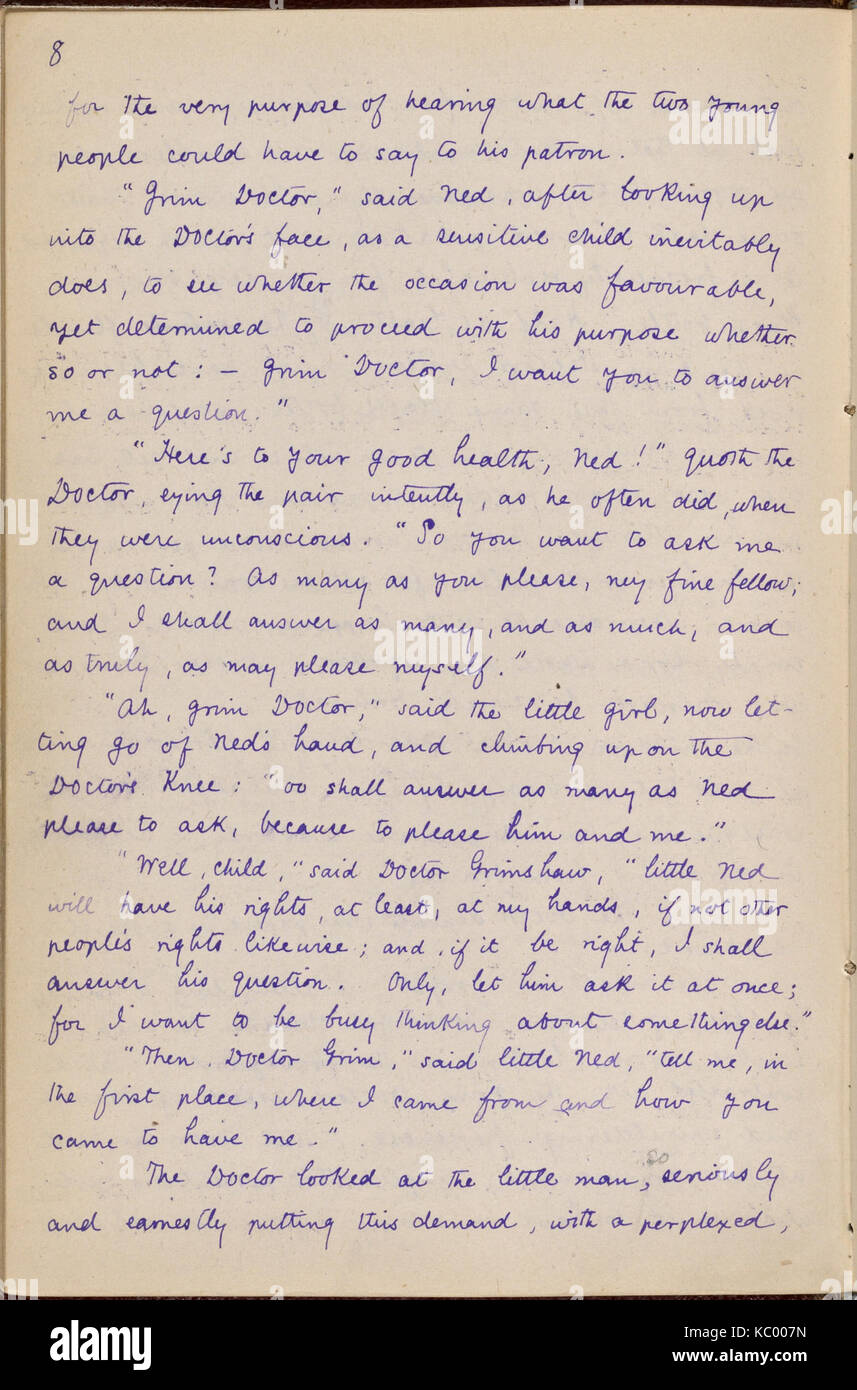 8
for the very purpose of hearing what the two young
people could have to say to his patron.
"Grim Doctor," said Ned, after looking up
into the Doctor's face, as a sensitive child inevitably
does, to see whether the occasion was favourable,
yet determined to proceed with his purpose whether
so or not: — Grim Doctor, I want you to answer
me a question."
"Here's to your good health, Ned!" quoth the
Doctor, eying the pair intently, as he often did, when
they were unconscious. "So you want to ask me
a question? As many as you please, my fine fellow;
and I shall answer as many, and as much, and
as truly, as may please myself."
"Ah, Grim Doctor," said the little girl, now let-
ting go of Ned's hand, and climbing upon the
Doctor's Knee: "oo shall answer as many as Ned
please to ask, because to please him and me."
"Well, child," said Doctor Grimshaw, "little Ned
will have his rights, at least, at my hands, if not other
people's rights likewise; and, if it be right, I shall
answer his question. Only, let him ask it at once;
for I want to be busy thinking about something else."
"Then, Doctor Grim," said little Ned, "tell me, in
the first place, where I came from and how you
came to have me."
so
The Doctor looked at the little man, seriously
and earnestly putting this demand, with a perplexed,
alamy
alamy
alamy
a
alamy stock photo
KC007N
www.alamy.com